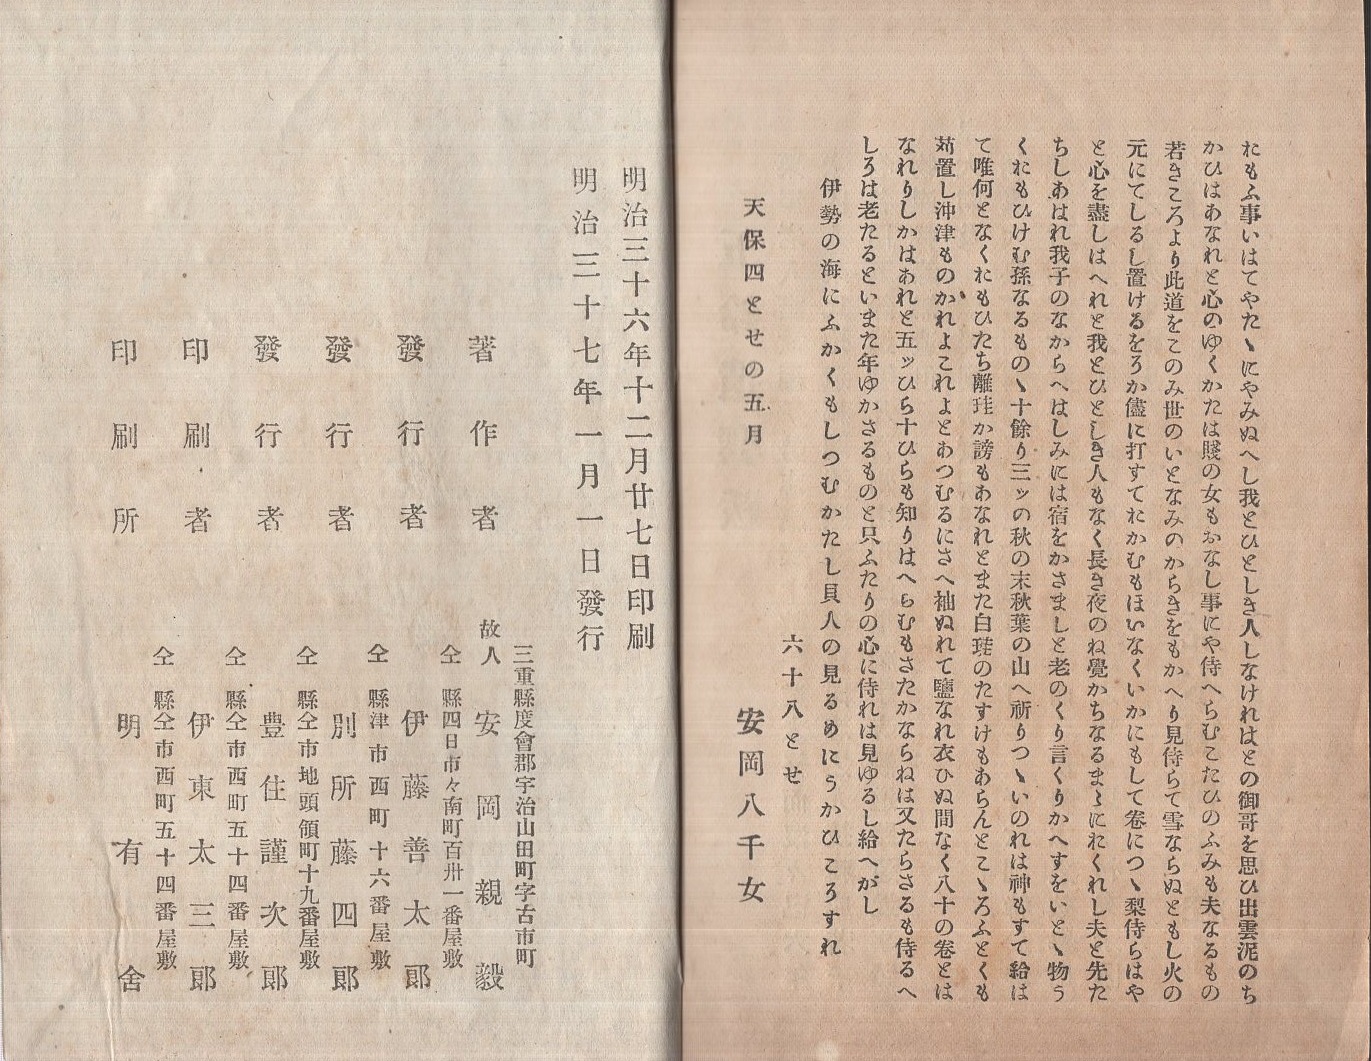 れもふ事いはてやたゝにやみぬへし我とひとしき人しなけれはとの御哥を思ひ出雲泥のち
かひはあなれと心のゆくかたは賤の女もおなし事にや侍へらむこたひのふみも夫なるもの
若きころより此道をこのみ世のいとなみのからきをもかへり見侍らて雪ならぬともし火の
元にてしるし置けるをろか儘に打すてれかむもほいなくいかにもして巻につゝ梨侍らはや
と心を盡しはへれと我とひとしき人もなく長き夜のね覺かちなるまゝにれくれし夫と先た
ちしあはれ我子のなからへはしみには宿をかさましと老のくり言くりかへすをいとゝ物う
くれもひけむ孫なるものゝ十餘り三ッの秋の末秋葉の山へ祈りつゝいのれは神もすて給は
て唯何となくれもひたち離珪か謗もあなれとまた白珪のたすけもあらんとこゝろふとくも
苅置し沖津ものかれよこれよとあつむるにさへ袖ぬれて鹽なれ衣ひぬ間なく八十の巻とは
なれりしかはあれと五ッひら十ひらも知りはへらむもさたかならねは又たらさるも侍るへ
しろは老たるといまた年ゆかさるものと只ふたりの心に侍れは見ゆるし給へがし
伊勢の海にふかくもしつむかたし貝人の見るめにうかひころすれ
六十八とせ
天保四とせの五月
安岡八千女
明治三十六年十二月廿七日印刷
明治三十七年一月一日發行
三重縣度會郡宇治山田町字古市町
著作者 故人 安岡親毅
仝縣四日市々南町百卅一番屋敷
發行者 伊藤善太郎
仝縣津市西町十六番屋敷
發行者 別所藤四郎
仝縣仝市地頭領町十九番屋敷
發行者 豊住謹次郎
仝縣仝市西町五十四番屋敷
印刷者 伊東太三郎
仝縣仝市西町五十四番屋敷
印刷所 明有舍